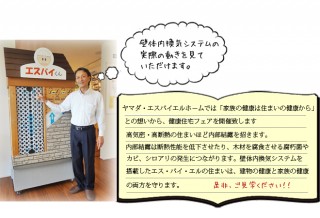 エスバイくん
壁体内換気システムの
実際の動きを見て
いただけます。
ヤマダ・エスバイエルホームでは「家族の健康は住まいの健康から」
との想いから、健康住宅フェアを開催致します
高気密・高断熱の住まいほど内部結露を招きます。
内部結露は断熱性能を低下させたり、木材を腐食させる腐朽菌や
カビ、シロアリの発生につながります。壁体内換気システムを
搭載したエス・バイ・エルの住まいは、建物の健康と家族の健康
の両方を守ります。
是非、ご見学ください!!